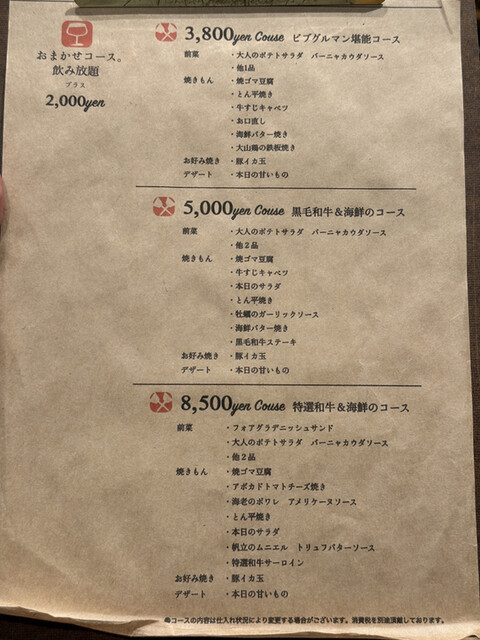 おまかせコース。
飲み放題
プラス
2,000yen
3,800yen Couse ビブグルマン堪能コース
前菜 ・大人のポテトサラダ バーニャカウダソース
・他1品
焼きもん ・焼ゴマ豆腐
・とん平焼き
・牛すじキャベツ
・お口直し
・海鮮バター焼き
・大山鶏の鉄板焼き
お好み焼き ・豚イカ玉
デザート ・本日の甘いもの
5,000yen Couse 黒毛和牛&海鮮のコース
前菜 ・大人のポテトサラダ バーニャカウダソース
・他2品
焼きもん ・焼ゴマ豆腐
・牛すじキャベツ
・本日のサラダ
・とん平焼き
・牡蠣のガーリックソース
・海鮮バター焼き
・黒毛和牛ステーキ
お好み焼き ・豚イカ玉
デザート ・本日の甘いもの
8,500yen Couse 特選和牛&海鮮のコース
前菜 ・フォアグラデニッシュサンド
・大人のポテトサラダ バーニャカウダソース
・他2品
焼きもん ・焼ゴマ豆腐
・アボカドトマトチーズ焼き
・海老のポワレ アメリケーヌソース
・とん平焼き
・本日のサラダ
・帆立のムニエル トリュフバターソース
・特選和牛サーロイン
お好み焼き ・豚イカ玉
デザート ・本日の甘いもの
※コースの内容は仕入れ状況により変更する場合がございます。消費税を別途頂戴しております。